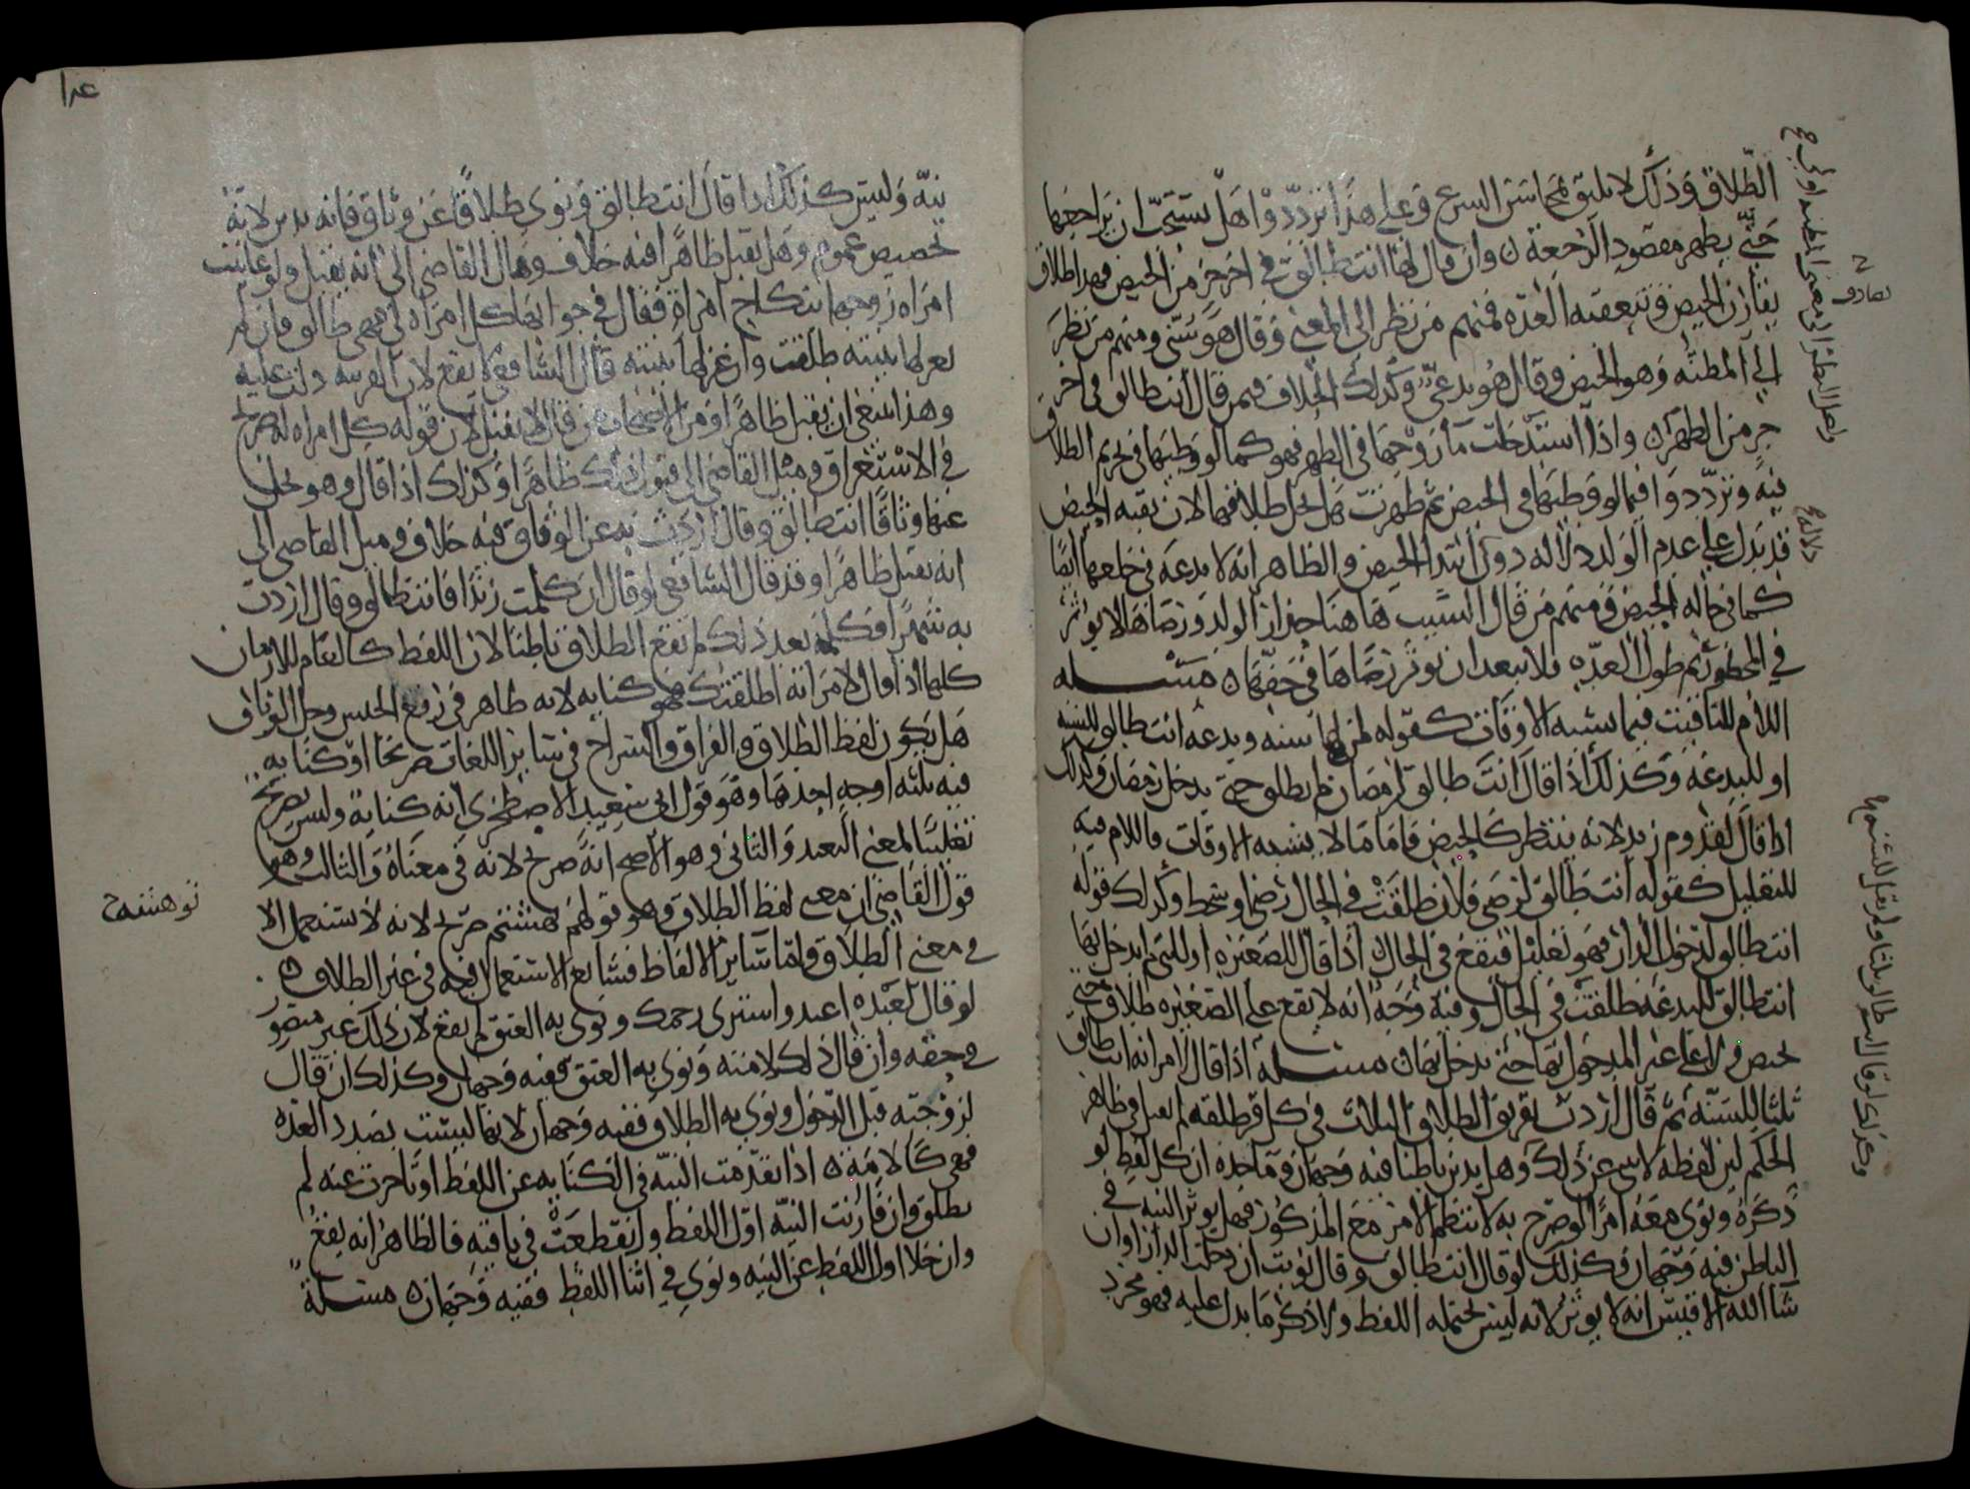 الطلاق وذلك لا يليق بمحاسن الشرع وعلى هذا ترددوا هل يستحب ان يراجعها
حتى يظهر مقصود الرجعة ن وان قال لها انت طالق في اخر جز من الحيض فهذا طلاق
يقارن الحيض وتتعقبه العدة فمنهم من نظر الى المعنى وقال هو سني ومنهم من نظر
الى المظنة وهو الحيض وقال هو بدعي وكذلك الخلاف فيمن قال انت طالق في اخر
جز من الطهر ن واذا استدخلت ما زوجها في الطهر فهو كما لو وطيها في تحريم الطلاق
فيه وترددوا فيما لو وطيها في الحيض ثم طهرت هل يحل طلاقها لان بقية الحيض
قد تدل على عدم الولد دلالة دون ابتدا الحيض والظاهر انه لا بدعة في خلعها ايضا
كما في حالة الحيض ومنهم من قال السبب هاهنا حذار الولد ورضاها لا يوثر
في المحظور ثم طول العدة ولا يبعد ان يوثر رضاها في حقها ن مسئلة
اللام للتاقيت فيما يشبه الاوقات كقوله لمن لها سنة وبدعة انت طالق للسنة
او للبدعة وكذلك اذا قال انت طالق لرمضان لم يطلق حتى يدخل رمضان وكذلك
اذا قال لقدوم زيد لانه ينتظر كالحيض فاما ما لا يشبه الاوقات فاللام فيه
للتعليل كقوله انت طالق لرضى فلان طلقت في الحال رضي او سخط وكذلك قوله
انت طالق لدخول الدار فهو تعليل فيقع في الحال اذا قال للصغيرة او للتي لم يدخل بها
انت طالق للبدعة طلقت في الحال وفيه وجه انه لا يقع على الصغيرة طلاق حتى
تحيض ولا على غير المدخول بها حتى يدخل بها ن مسئلة اذا قال لامراته انت طالق
ثلثا للسنة ثم قال اردت تفريق الطلاق الثلاث في كل قرء طلقة لم يقبل في ظاهر
الحكم لان لفظه لا ينبي عن ذلك وهل يدين باطنا فيه وجهان وماخذه ان كل لفظ لو
ذكره ونوى معه امرا لو صرح به لانتظم الامر مع المذكور فهل يوثر النية في
الباطن فيه وجهان وكذلك لو قال انت طالق وقال نويت ان دخلت الدار او ان
شا الله الاقيس انه لا يوثر لانه ليس يحتمله اللفظ ولا ذكر ما يدل عليه فهو مجرد
تصادف
دلالة
وكذلك لو قال انت طالق ثلثا ولم يقل للسنة
عدا
نية وليس كذلك اذا قال انت طالق ونوى طلاقا عن وثاق فانه يدين لانه
تخصيص عموم وهل يقبل ظاهرا فيه خلاف ومال القاضي الى انه يقبل ولو عاتبت
امراه زوجها بنكاح امراة فقال في جوابها كل امراه لي فهي طالق فان لم
يعزلها بنيته طلقت وان عزلها بنيته قال الشافعي لا يقع لان القرينه دلت عليه
وهذا ينبغي ان يقبل ظاهرا ومن الاصحاب من قال لا يقبل لان قوله كل امراه له صريح
في الاستغراق وميل القاضي الى قبول ذلك ظاهرا وكذلك اذا قال وهو يحل
عنها وثاقا انت طالق وقال اردت به عن الوثاق فيه خلاف وميل القاضي الى
انه يقبل ظاهرا وقد قال الشافعي لو قال ان كلمت زيدا فانت طالق وقال اردت
به شهرا فكلمه بعد ذلك لم يقع الطلاق باطنا لان اللفظ كالعام للازمان
كلها اذا قال لامراته اطلقتك فهو كناية لانه ظاهر في رفع الحبس وحل الوثاق
هل يكون لفظ الطلاق والفراق والسراح في سائر اللغات صريحا او كنايه
فيه ثلثه اوجه احدها وهو قول ابي سعيد الاصطخري انه كناية وليس بصريح
تغليبا لمعنى التعبد والثاني وهو الاصح انه صريح لانه في معناه والثالث وهو
قول القاضي ان معنى لفظ الطلاق وهو قولهم هشتم صريح لانه لا يستعمل الا
في معنى الطلاق واما سائر الالفاظ فشايع الاستعمال فيه في غير الطلاق ن
لو قال لعبده اعتد واستبري رحمك ونوى به العتق لم يقع لان ذلك غير متصور
في حقه وان قال ذلك لامته ونوى به العتق ففيه وجهان وكذلك ان قال
لزوجته قبل الدخول ونوى به الطلاق ففيه وجهان لانها ليست بصدد العدة
فهي كالامة ن اذا تقدمت النية في الكنايه عن اللفظ او تاخرت عنه لم
يطلق وان قارنت النية اول اللفظ وانقطعت في باقيه فالظاهر انه يقع
وان خلا اول اللفظ عن النيه ونوى في اثنا اللفظ ففيه وجهان ن مسئلة
توهشته